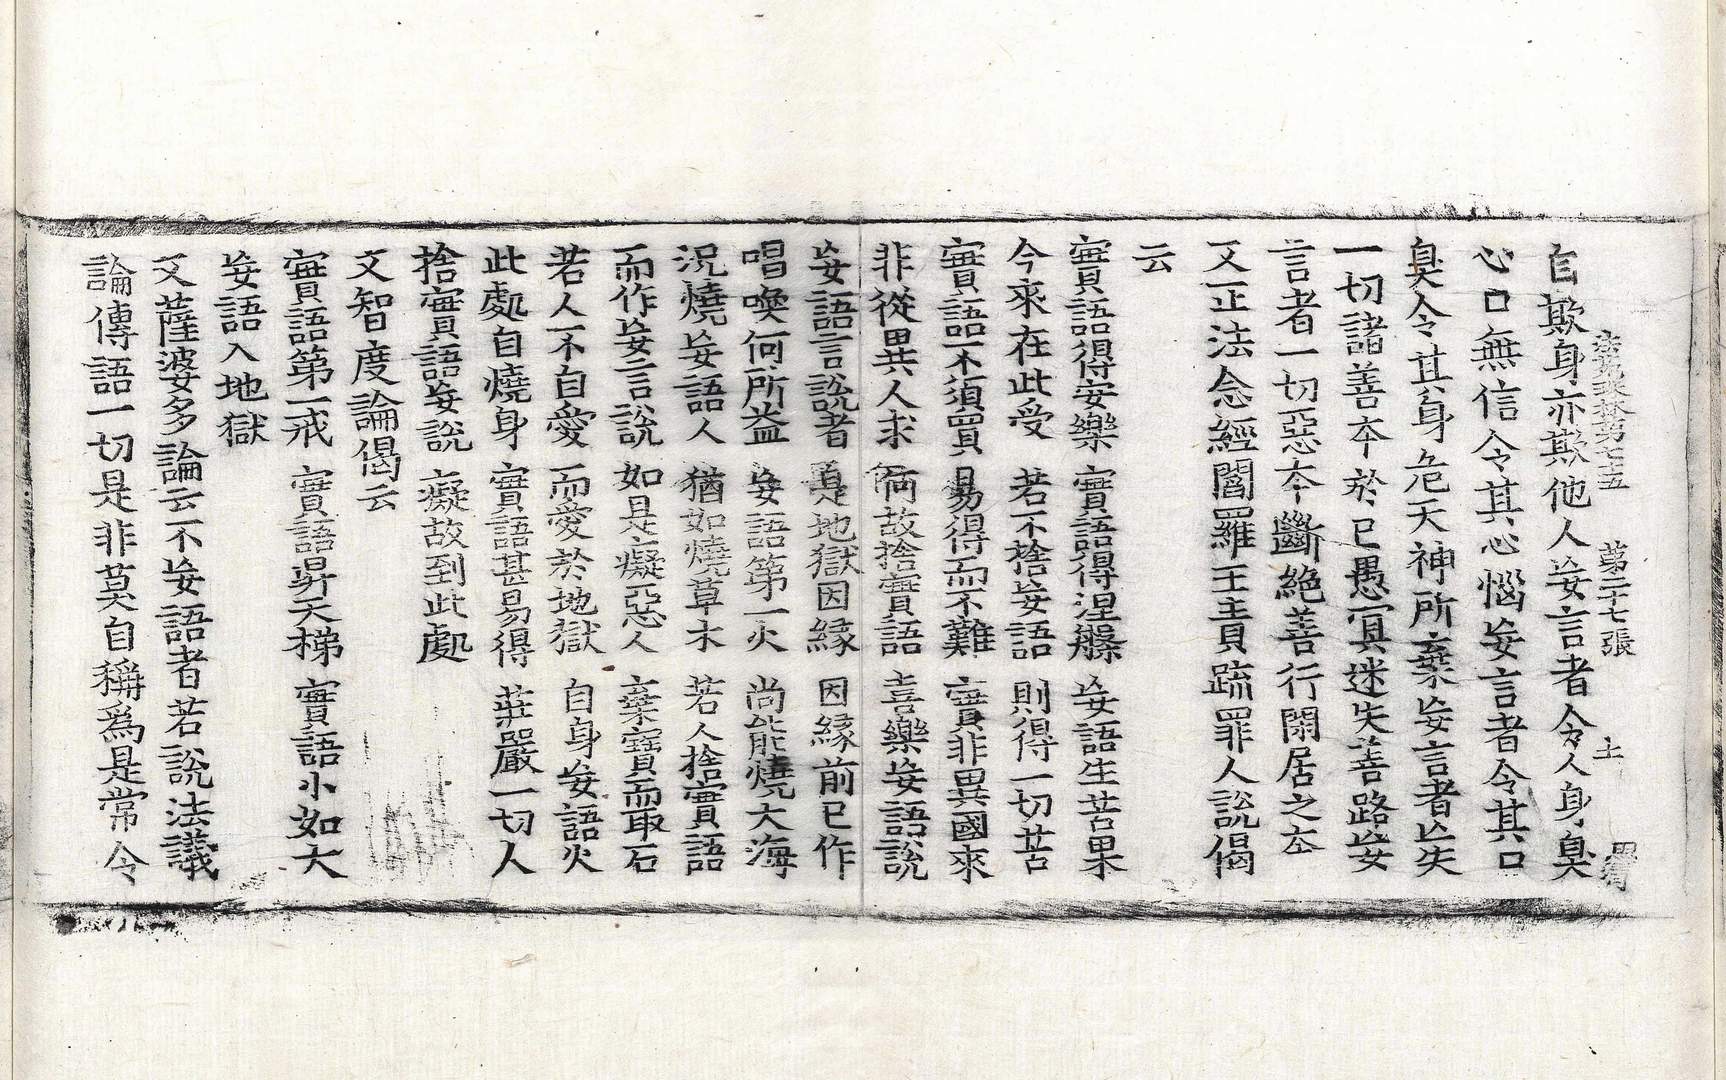 法苑珠林第七十五 第二十七張 土
自欺身亦欺他人妄言者令人身臭
心口無信令其心惱妄言者令其口
臭令其身危天神所棄妄言者亡失
一切諸善本於已愚冥迷失善路妄
言者一切惡本斷絶善行閑居之本
又正法念經閻羅王主責疏罪人說偈
云
實語得安樂 實語得涅槃 妄語生苦果
今來在此受 若不捨妄語 則得一切苦
實語不須買 易得而不難 實非異國來
非從異人求 何故捨實語 喜樂妄語說
妄語言說者 是地獄因緣 因緣前已作
唱喚何所益 妄語第一火 尚能燒大海
況燒妄語人 猶如燒草木 若人捨實語
而作妄言說 如是癡惡人 棄寶而取石
若人不自愛 而愛於地獄 自身妄語火
此處自燒身 實語甚易得 莊嚴一切人
捨實語妄說 癡故到此處
又智度論偈云
實語第一戒 實語昇天梯 實語小如大
妄語入地獄
又薩婆多論云不妄語者若說法議
論傳語一切是非莫自稱爲是常令